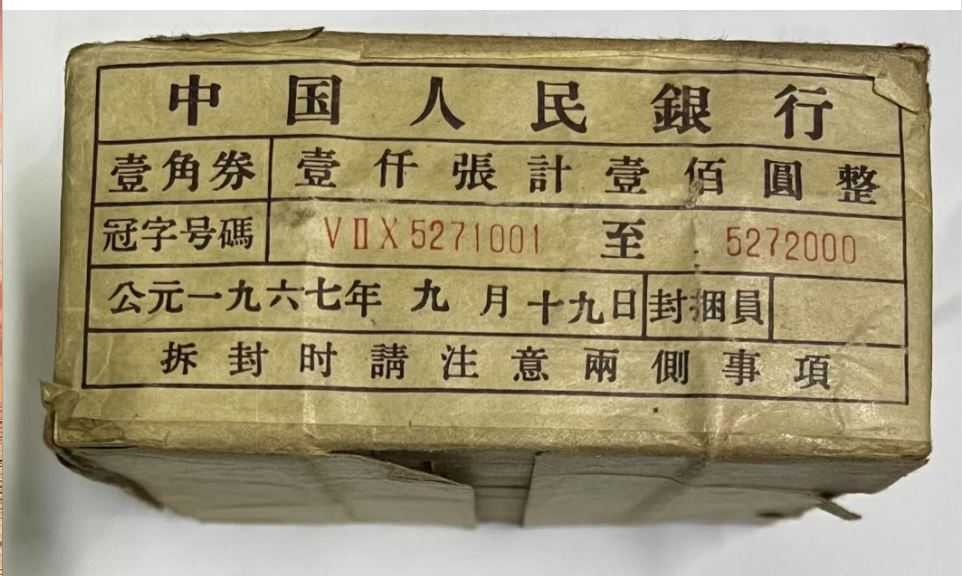 中国人民銀行
壹角券 壹仟張計壹佰圓整
冠字号碼 VⅡX5271001 至 5272000
公元一九六七年九月十九日 封捆員
拆封时請注意兩側事項